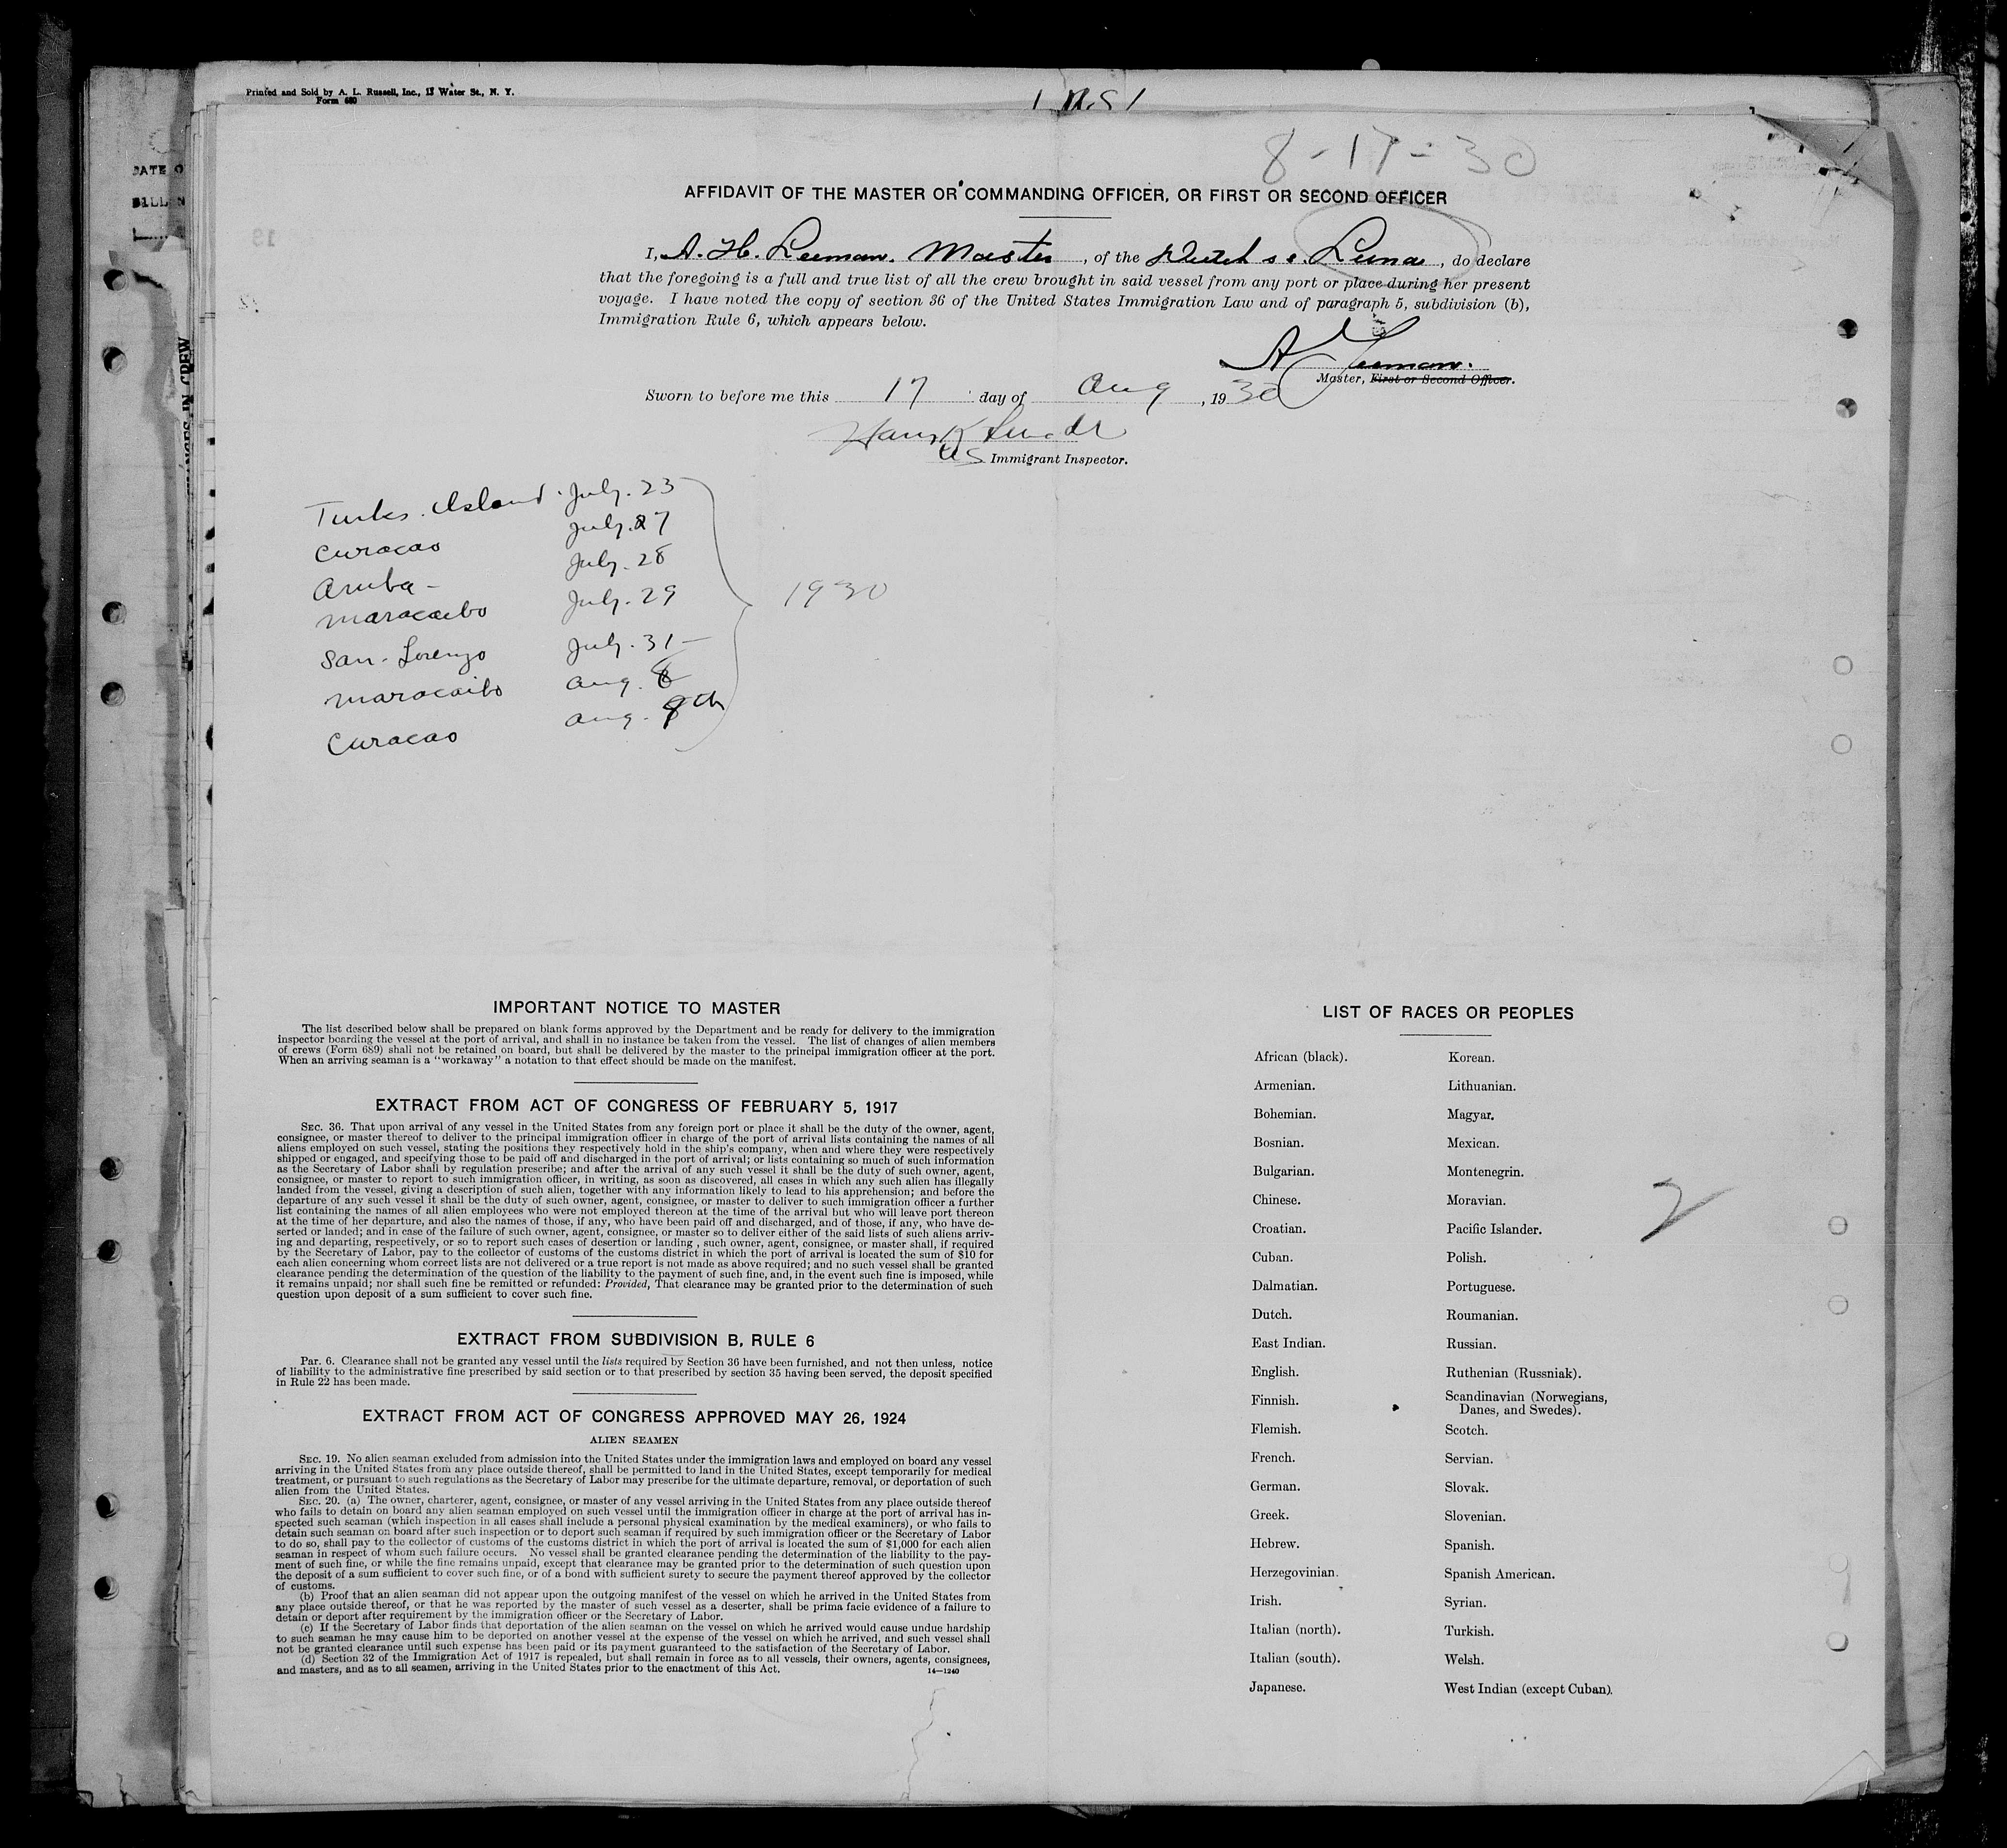 Printed and Sold by A. L. Russell, Inc., 13 Water St., N. Y.
Form 680
8-17-30
DATE O
BILL N
AFFIDAVIT OF THE MASTER OR COMMANDING OFFICER, OR FIRST OR SECOND OFFICER
I, A. H. Leeman. Master, of the Dutch s s. Luna, do declare
that the foregoing is a full and true list of all the crew brought in said vessel from any port or place during her present
voyage. I have noted the copy of section 36 of the United States Immigration Law and of paragraph 5, subdivision (b),
Immigration Rule 6, which appears below.
A Leeman.
Master, First or Second Officer.
Sworn to before me this 17 day of Aug, 1930
US Immigrant Inspector.
Turks. Island. July. 23
Curacao July. 27
Aruba - July. 28
Maracaibo July. 29
San. Lorenzo July. 31 -
Maracaibo Aug. 8
Curacao Aug. 9th
1930
IMPORTANT NOTICE TO MASTER
The list described below shall be prepared on blank forms approved by the Department and be ready for delivery to the immigration
inspector boarding the vessel at the port of arrival, and shall in no instance be taken from the vessel. The list of changes of alien members
of crews (Form 689) shall not be retained on board, but shall be delivered by the master to the principal immigration officer at the port.
When an arriving seaman is a "workaway" a notation to that effect should be made on the manifest.
EXTRACT FROM ACT OF CONGRESS OF FEBRUARY 5, 1917
SEC. 36. That upon arrival of any vessel in the United States from any foreign port or place it shall be the duty of the owner, agent,
consignee, or master thereof to deliver to the principal immigration officer in charge of the port of arrival lists containing the names of all
aliens employed on such vessel, stating the positions they respectively hold in the ship's company, when and where they were respectively
shipped or engaged, and specifying those to be paid off and discharged in the port of arrival; or lists containing so much of such information
as the Secretary of Labor shall by regulation prescribe; and after the arrival of any such vessel it shall be the duty of such owner, agent,
consignee, or master to report to such immigration officer, in writing, as soon as discovered, all cases in which any such alien has illegally
landed from the vessel, giving a description of such alien, together with any information likely to lead to his apprehension; and before the
departure of any such vessel it shall be the duty of such owner, agent, consignee, or master to deliver to such immigration officer a further
list containing the names of all alien employees who were not employed thereon at the time of the arrival but who will leave port thereon
at the time of her departure, and also the names of those, if any, who have been paid off and discharged, and of those, if any, who have de-
serted or landed; and in case of the failure of such owner, agent, consignee, or master so to deliver either of the said lists of such aliens arriv-
ing and departing, respectively, or so to report such cases of desertion or landing, such owner, agent, consignee, or master shall, if required
by the Secretary of Labor, pay to the collector of customs of the customs district in which the port of arrival is located the sum of $10 for
each alien concerning whom correct lists are not delivered or a true report is not made as above required; and no such vessel shall be granted
clearance pending the determination of the question of the liability to the payment of such fine, and, in the event such fine is imposed, while
it remains unpaid; nor shall such fine be remitted or refunded: Provided, That clearance may be granted prior to the determination of such
question upon deposit of a sum sufficient to cover such fine.
EXTRACT FROM SUBDIVISION B, RULE 6
Par. 6. Clearance shall not be granted any vessel until the lists required by Section 36 have been furnished, and not then unless, notice
of liability to the administrative fine prescribed by said section or to that prescribed by section 35 having been served, the deposit specified
in Rule 22 has been made.
EXTRACT FROM ACT OF CONGRESS APPROVED MAY 26, 1924
ALIEN SEAMEN
SEC. 19. No alien seaman excluded from admission into the United States under the immigration laws and employed on board any vessel
arriving in the United States from any place outside thereof, shall be permitted to land in the United States, except temporarily for medical
treatment, or pursuant to such regulations as the Secretary of Labor may prescribe for the ultimate departure, removal, or deportation of such
alien from the United States.
SEC. 20. (a) The owner, charterer, agent, consignee, or master of any vessel arriving in the United States from any place outside thereof
who fails to detain on board any alien seaman employed on such vessel until the immigration officer in charge at the port of arrival has in-
spected such seaman (which inspection in all cases shall include a personal physical examination by the medical examiners), or who fails to
detain such seaman on board after such inspection or to deport such seaman if required by such immigration officer or the Secretary of Labor
to do so, shall pay to the collector of customs of the customs district in which the port of arrival is located the sum of $1,000 for each alien
seaman in respect of whom such failure occurs. No vessel shall be granted clearance pending the determination of the liability to the pay-
ment of such fine, or while the fine remains unpaid, except that clearance may be granted prior to the determination of such question upon
the deposit of a sum sufficient to cover such fine, or of a bond with sufficient surety to secure the payment thereof approved by the collector
of customs.
(b) Proof that an alien seaman did not appear upon the outgoing manifest of the vessel on which he arrived in the United States from
any place outside thereof, or that he was reported by the master of such vessel as a deserter, shall be prima facie evidence of a failure to
detain or deport after requirement by the immigration officer or the Secretary of Labor.
(c) If the Secretary of Labor finds that deportation of the alien seaman on the vessel on which he arrived would cause undue hardship
to such seaman he may cause him to be deported on another vessel at the expense of the vessel on which he arrived, and such vessel shall
not be granted clearance until such expense has been paid or its payment guaranteed to the satisfaction of the Secretary of Labor.
(d) Section 32 of the Immigration Act of 1917 is repealed, but shall remain in force as to all vessels, their owners, agents, consignees,
and masters, and as to all seamen, arriving in the United States prior to the enactment of this Act.
14-1240
LIST OF RACES OR PEOPLES
African (black). Korean.
Armenian. Lithuanian.
Bohemian. Magyar.
Bosnian. Mexican.
Bulgarian. Montenegrin.
Chinese. Moravian.
Croatian. Pacific Islander.
Cuban. Polish.
Dalmatian. Portuguese.
Dutch. Roumanian.
East Indian. Russian.
English. Ruthenian (Russniak).
Finnish. Scandinavian (Norwegians,
Danes, and Swedes).
Flemish. Scotch.
French. Servian.
German. Slovak.
Greek. Slovenian.
Hebrew. Spanish.
Herzegovinian. Spanish American.
Irish. Syrian.
Italian (north). Turkish.
Italian (south). Welsh.
Japanese. West Indian (except Cuban).
2